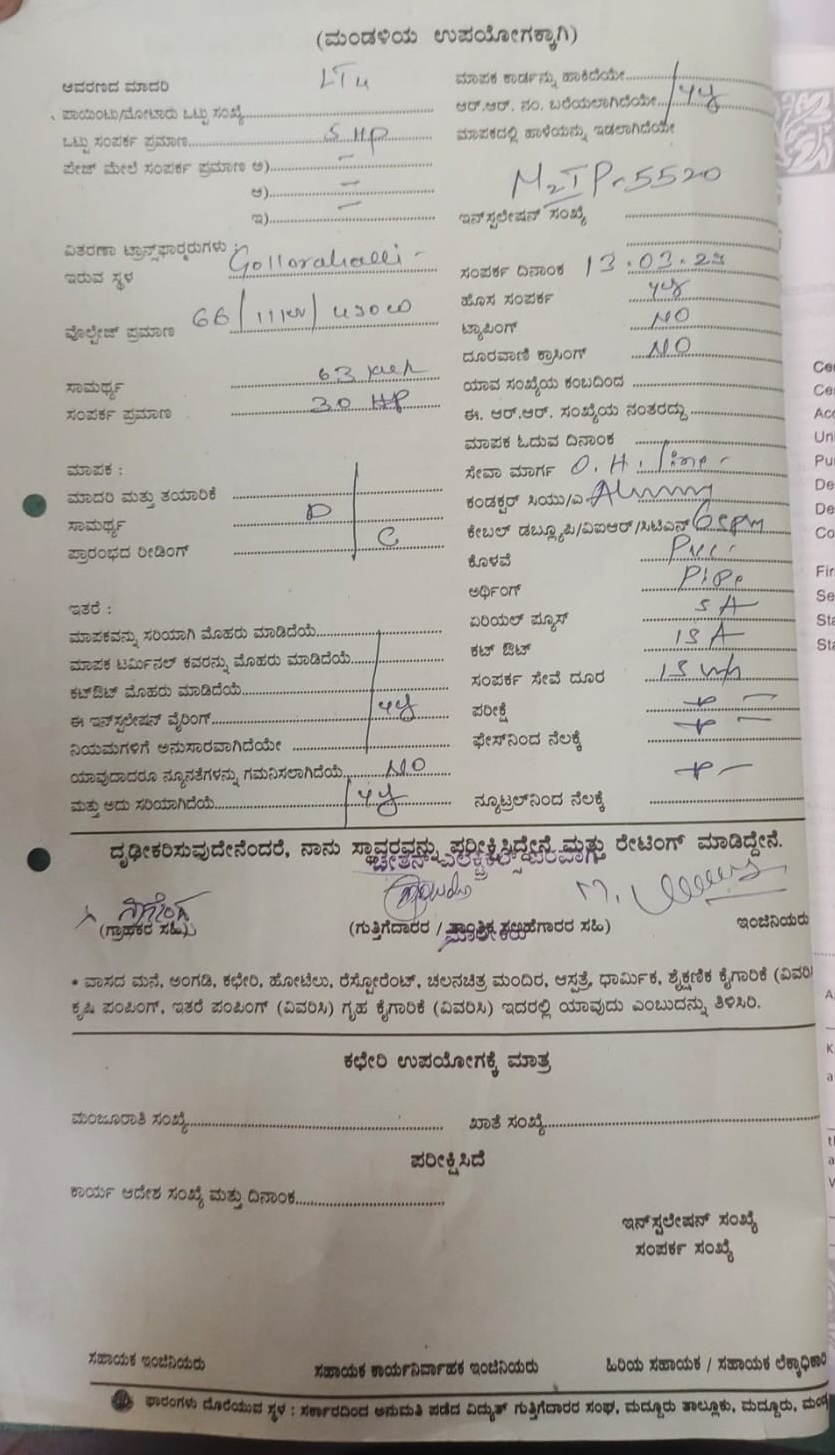 (ಮಂಡಳಿಯ ಉಪಯೋಗಕ್ಕಾಗಿ)
ಆವರಣದ ಮಾದರಿ LT4
ಪಾಯಿಂಟು/ಮೋಟಾರು ಒಟ್ಟು ಸಂಖ್ಯೆ
ಒಟ್ಟು ಸಂಪರ್ಕ ಪ್ರಮಾಣ 5 HP
ಪೇಜ್ ಮೇಲೆ ಸಂಪರ್ಕ ಪ್ರಮಾಣ ಅ) –
ಆ) –
ಇ) –
ವಿತರಣಾ ಟ್ರಾನ್ಸ್‌ಫಾರ್‍ಮರುಗಳು :
ಇರುವ ಸ್ಥಳ Gollarahalli
ವೊಲ್ಟೇಜ್ ಪ್ರಮಾಣ 66/11KV/
ಸಾಮರ್ಥ್ಯ 63
ಸಂಪರ್ಕ ಪ್ರಮಾಣ 30 HP
ಮಾಪಕ :
ಮಾದರಿ ಮತ್ತು ತಯಾರಿಕೆ
ಸಾಮರ್ಥ್ಯ D
ಪ್ರಾರಂಭದ ರೀಡಿಂಗ್ C
ಇತರೆ :
ಮಾಪಕವನ್ನು ಸರಿಯಾಗಿ ಮೊಹರು ಮಾಡಿದೆಯೆ
ಮಾಪಕ ಟರ್ಮಿನಲ್ ಕವರನ್ನು ಮೊಹರು ಮಾಡಿದೆಯೆ
ಕಟ್‌ಔಟ್ ಮೊಹರು ಮಾಡಿದೆಯೆ
ಈ ಇನ್‌ಸ್ಟಲೇಷನ್ ವೈರಿಂಗ್
ನಿಯಮಗಳಿಗೆ ಅನುಸಾರವಾಗಿದೆಯೇ
ಯಾವುದಾದರೂ ನ್ಯೂನತೆಗಳನ್ನು ಗಮನಿಸಲಾಗಿದೆಯೆ NO
ಮತ್ತು ಅದು ಸರಿಯಾಗಿದೆಯೆ
ಮಾಪಕ ಕಾರ್ಡನ್ನು ಹಾಕಿದೆಯೇ
ಆರ್.ಆರ್. ನಂ. ಬರೆಯಲಾಗಿದೆಯೇ
ಮಾಪಕದಲ್ಲಿ ಹಾಳೆಯನ್ನು ಇಡಲಾಗಿದೆಯೇ
M2IP-5520
ಇನ್‌ಸ್ಟಲೇಷನ್ ಸಂಖ್ಯೆ
ಸಂಪರ್ಕ ದಿನಾಂಕ 13.03.25
ಹೊಸ ಸಂಪರ್ಕ
ಟ್ಯಾಪಿಂಗ್ NO
ದೂರವಾಣಿ ಕ್ರಾಸಿಂಗ್ NO
ಯಾವ ಸಂಖ್ಯೆಯ ಕಂಬದಿಂದ
ಈ. ಆರ್.ಆರ್. ಸಂಖ್ಯೆಯ ನಂತರದ್ದು
ಮಾಪಕ ಓದುವ ದಿನಾಂಕ
ಸೇವಾ ಮಾರ್ಗ O.H. line
ಕಂಡಕ್ಟರ್ ಸಿಯು/ಎ
ಕೇಬಲ್ ಡಬ್ಲ್ಯೂಪಿ/ವಿಐಆರ್/ಸಿಟಿಎನ್
ಕೊಳವೆ PVC
ಅರ್ಥಿಂಗ್ Pipe
ಏರಿಯಲ್ ಪ್ಯೂಸ್ 5 A
ಕಟ್ ಔಟ್ 15 A
ಸಂಪರ್ಕ ಸೇವೆ ದೂರ 15
ಪರೀಕ್ಷೆ + –
ಫೇಸ್‌ನಿಂದ ನೆಲಕ್ಕೆ + –
ನ್ಯೂಟ್ರಲ್‌ನಿಂದ ನೆಲಕ್ಕೆ + –
ದೃಢೀಕರಿಸುವುದೇನೆಂದರೆ, ನಾನು ಸ್ಥಾವರವನ್ನು ಪರೀಕ್ಷಿಸಿದ್ದೇನೆ ಮತ್ತು ರೇಟಿಂಗ್ ಮಾಡಿದ್ದೇನೆ.
(ಗ್ರಾಹಕರ ಸಹಿ) (ಗುತ್ತಿಗೆದಾರರ / ತಾಂತ್ರಿಕ ಸಲಹೆಗಾರರ ಸಹಿ) ಇಂಜಿನಿಯರು
• ವಾಸದ ಮನೆ, ಅಂಗಡಿ, ಕಛೇರಿ, ಹೋಟೆಲು, ರೆಸ್ಟೋರೆಂಟ್, ಚಲನಚಿತ್ರ ಮಂದಿರ, ಆಸ್ಪತ್ರೆ, ಧಾರ್ಮಿಕ, ಶೈಕ್ಷಣಿಕ ಕೈಗಾರಿಕೆ (ವಿವರಿ
ಕೃಷಿ ಪಂಪಿಂಗ್, ಇತರೆ ಪಂಪಿಂಗ್ (ವಿವರಿಸಿ) ಗೃಹ ಕೈಗಾರಿಕೆ (ವಿವರಿಸಿ) ಇದರಲ್ಲಿ ಯಾವುದು ಎಂಬುದನ್ನು ತಿಳಿಸಿರಿ.
ಕಛೇರಿ ಉಪಯೋಗಕ್ಕೆ ಮಾತ್ರ
ಮಂಜೂರಾತಿ ಸಂಖ್ಯೆ ಖಾತೆ ಸಂಖ್ಯೆ
ಪರೀಕ್ಷಿಸಿದೆ
ಕಾರ್ಯ ಆದೇಶ ಸಂಖ್ಯೆ ಮತ್ತು ದಿನಾಂಕ
ಇನ್‌ಸ್ಟಲೇಷನ್ ಸಂಖ್ಯೆ
ಸಂಪರ್ಕ ಸಂಖ್ಯೆ
ಸಹಾಯಕ ಇಂಜಿನಿಯರು ಸಹಾಯಕ ಕಾರ್ಯನಿರ್ವಾಹಕ ಇಂಜಿನಿಯರು ಹಿರಿಯ ಸಹಾಯಕ / ಸಹಾಯಕ ಲೆಕ್ಕಾಧಿಕಾರಿ
ಫಾರಂಗಳು ದೊರೆಯುವ ಸ್ಥಳ : ಸರ್ಕಾರದಿಂದ ಅನುಮತಿ ಪಡೆದ ವಿದ್ಯುತ್ ಗುತ್ತಿಗೆದಾರರ ಸಂಘ, ಮದ್ದೂರು ತಾಲ್ಲೂಕು, ಮದ್ದೂರು, ಮಂಡ್ಯ